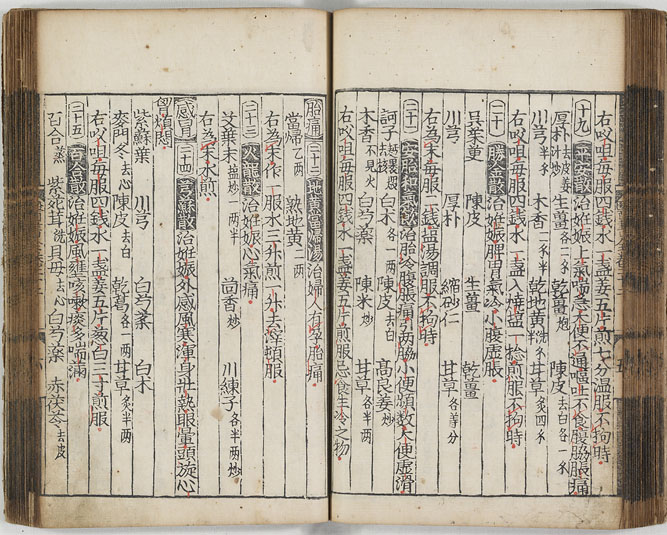 右㕮咀每服四錢水一盞姜五片煎七分温服不拘時
十九 平安散治姙娠上氣喘急大便不通嘔吐不食腹脇脹痛
厚朴去皮姜汁炒 生薑各二 乾薑炮 陳皮去白各一
川芎半 木香一 半 乾地黄半洗 甘草炙四
右㕮咀每服四錢水一盞入燒盬一捻煎服不拘時
二十 勝金散治姙娠脾胃氣冷小腹虚脹
吳茱萸 陳皮 生薑 乾薑
川芎 厚朴 縮砂仁 甘草各等分
右為末每服二錢盬湯調服不拘時
二十一 和氣散治胎冷腹脹痛引两脇小便頻数大便虚滑
訶子去核 各一两 陳皮去白 高良姜炒
木香不見火 白芍藥 陳米炒 甘草各半两
右㕮咀每服四錢水一盞姜五片煎服忌食生冷之物
胎痛 二十二 地黄當歸湯治婦人有孕胎痛
當歸乙两 熟地黄二两
右為末作一服水三升煎一升去滓頓服
二十三 火龍散治姙娠心氣痛
艾葉末塩炒一两半 茴香炒 川練子各半两炒
右為末水煎
感冒 二十四 芎蘇散治姙娠外感風寒渾身壮熱眼暈頭旋心
胷煩悶
紫蘇葉 川芎 白芍藥 白术
麥門冬去心 陳皮去白 乾葛各一两 甘草炙半两
右㕮咀每服四錢水一盞姜五片葱白三寸煎服
二十五 百合散治姙娠風壅咳嗽痰多喘滿
百合蒸 紫菀茸洗 貝母去心 白芍藥 赤茯苓去皮